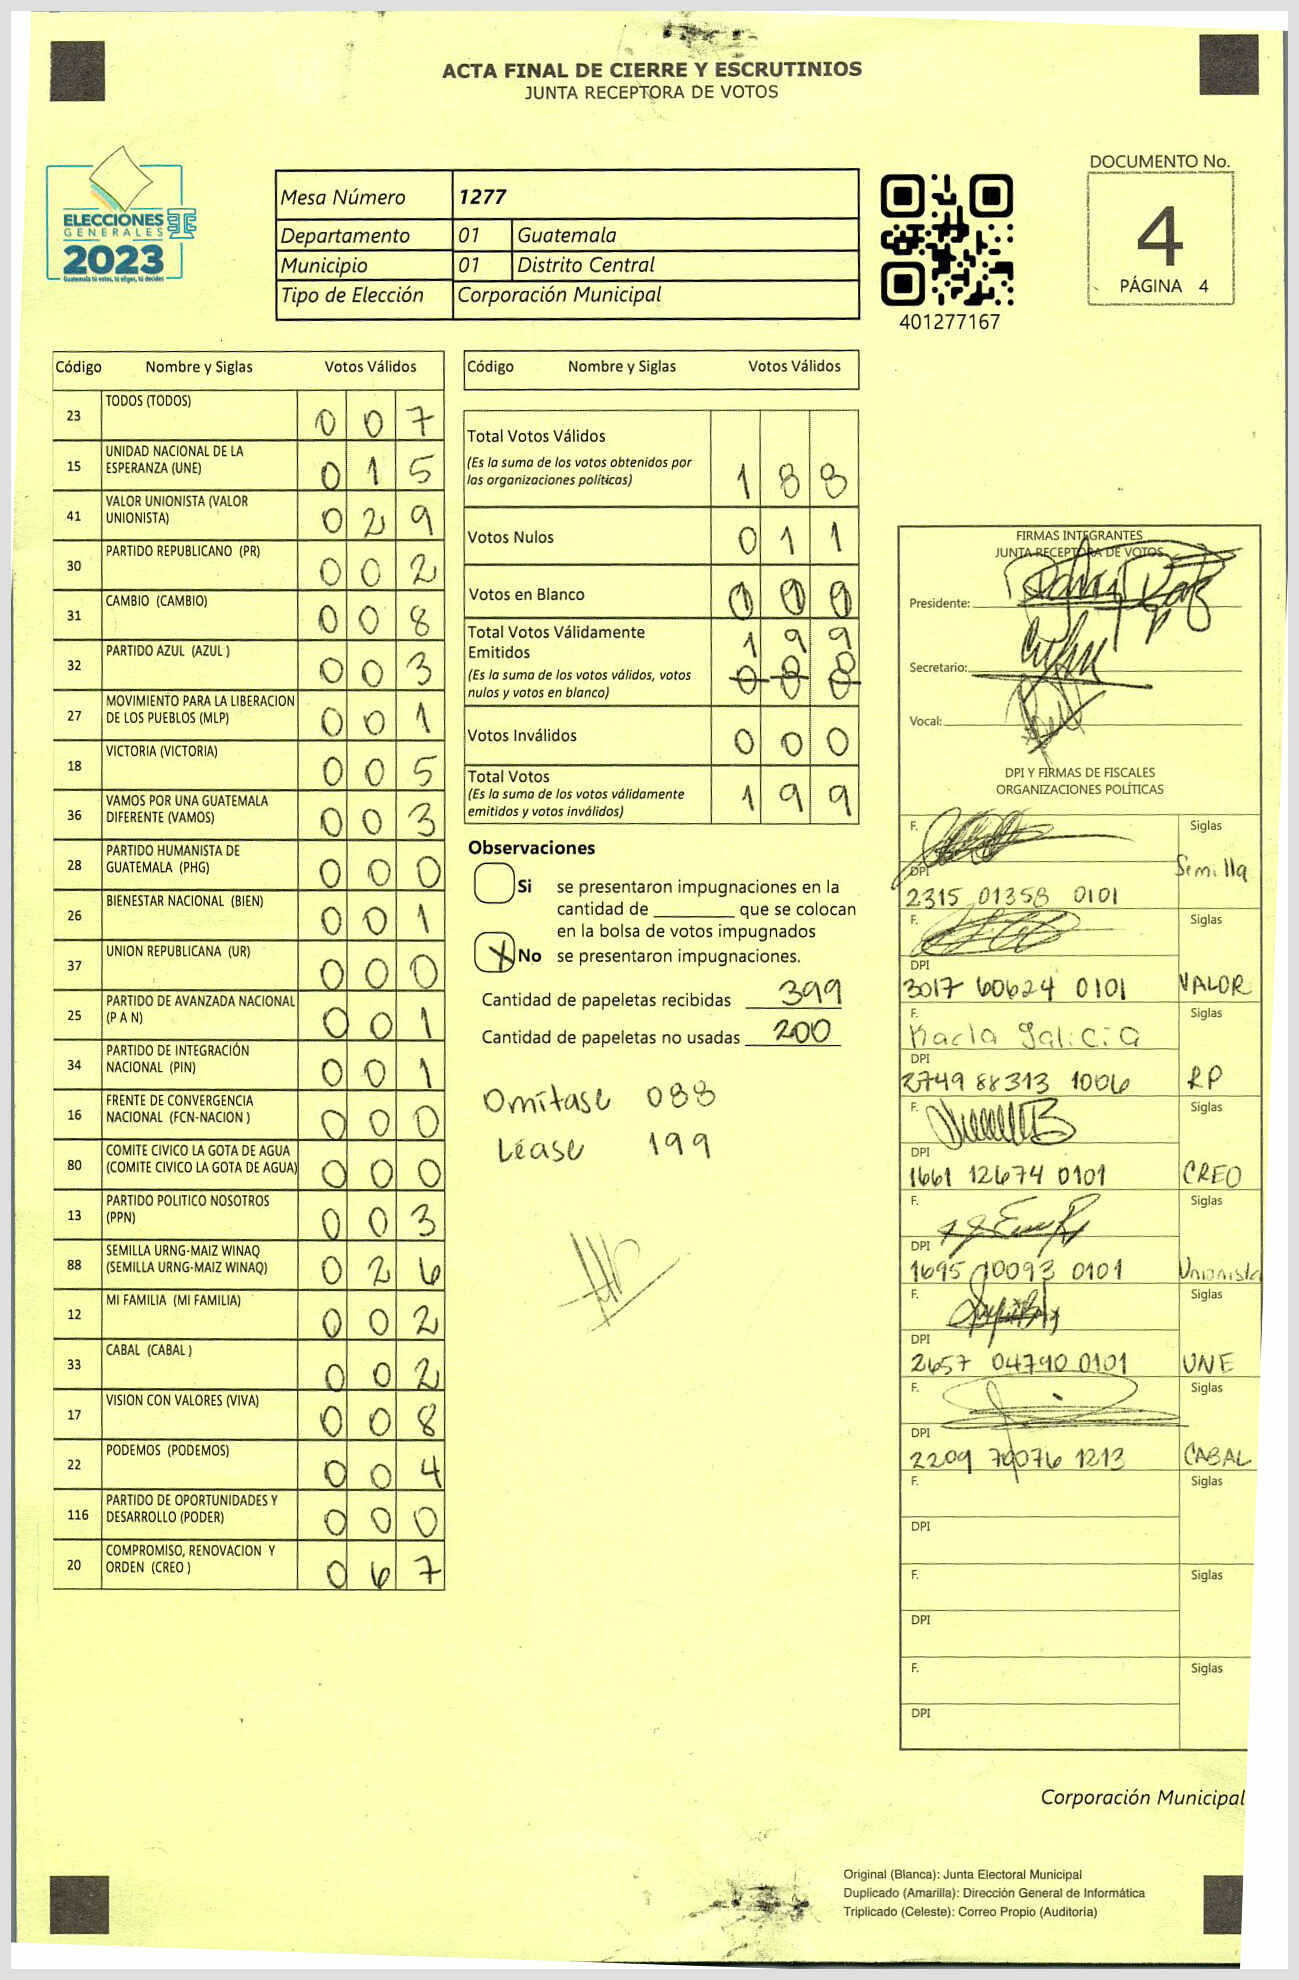 ACTA FINAL DE CIERRE Y ESCRUTINIOS
JUNTA RECEPTORA DE VOTOS
ELECCIONES
GENERALES
2023
Guatemala tú votas, tú eliges, tú decides
Mesa Número 1277
Departamento 01 Guatemala
Municipio 01 Distrito Central
Tipo de Elección Corporación Municipal
401277167
DOCUMENTO No.
4
PÁGINA 4
Código Nombre y Siglas Votos Válidos
23 TODOS (TODOS) 0 0 7
15 UNIDAD NACIONAL DE LA ESPERANZA (UNE) 0 1 5
41 VALOR UNIONISTA (VALOR UNIONISTA) 0 2 9
30 PARTIDO REPUBLICANO (PR) 0 0 2
31 CAMBIO (CAMBIO) 0 0 8
32 PARTIDO AZUL (AZUL ) 0 0 3
27 MOVIMIENTO PARA LA LIBERACION DE LOS PUEBLOS (MLP) 0 0 1
18 VICTORIA (VICTORIA) 0 0 5
36 VAMOS POR UNA GUATEMALA DIFERENTE (VAMOS) 0 0 3
28 PARTIDO HUMANISTA DE GUATEMALA (PHG) 0 0 0
26 BIENESTAR NACIONAL (BIEN) 0 0 1
37 UNION REPUBLICANA (UR) 0 0 0
25 PARTIDO DE AVANZADA NACIONAL (P A N) 0 0 1
34 PARTIDO DE INTEGRACIÓN NACIONAL (PIN) 0 0 1
16 FRENTE DE CONVERGENCIA NACIONAL (FCN-NACION ) 0 0 0
80 COMITE CIVICO LA GOTA DE AGUA (COMITE CIVICO LA GOTA DE AGUA) 0 0 0
13 PARTIDO POLITICO NOSOTROS (PPN) 0 0 3
88 SEMILLA URNG-MAIZ WINAQ (SEMILLA URNG-MAIZ WINAQ) 0 2 6
12 MI FAMILIA (MI FAMILIA) 0 0 2
33 CABAL (CABAL ) 0 0 2
17 VISION CON VALORES (VIVA) 0 0 8
22 PODEMOS (PODEMOS) 0 0 4
116 PARTIDO DE OPORTUNIDADES Y DESARROLLO (PODER) 0 0 0
20 COMPROMISO, RENOVACION Y ORDEN (CREO ) 0 6 7
Código Nombre y Siglas Votos Válidos
Total Votos Válidos 1 8 8
(Es la suma de los votos obtenidos por
las organizaciones políticas)
Votos Nulos 0 1 1
Votos en Blanco 0 0 0
Total Votos Válidamente Emitidos 1 9 9
(Es la suma de los votos válidos, votos
nulos y votos en blanco)
Votos Inválidos 0 0 0
Total Votos 1 9 9
(Es la suma de los votos válidamente
emitidos y votos inválidos)
Observaciones
Si se presentaron impugnaciones en la
cantidad de ________ que se colocan
en la bolsa de votos impugnados
X No se presentaron impugnaciones.
Cantidad de papeletas recibidas 399
Cantidad de papeletas no usadas 200
Omitase 088
Léase 199
FIRMAS INTEGRANTES
JUNTA RECEPTORA DE VOTOS
Presidente:
Secretario:
Vocal:
DPI Y FIRMAS DE FISCALES
ORGANIZACIONES POLÍTICAS
F. Siglas
DPI Semilla
2315 01358 0101
F. Siglas
DPI
3017 60624 0101 VALOR
F. Siglas
Karla Galicia
DPI
2749 88313 1006 RP
F. Siglas
DPI
1661 12674 0101 CREO
F. Siglas
DPI
1695 10093 0101 Unionista
F. Siglas
DPI
2657 04790 0101 UNE
F. Siglas
DPI
2209 79076 1213 CABAL
F. Siglas
DPI
F. Siglas
DPI
F. Siglas
DPI
Corporación Municipal
Original (Blanca): Junta Electoral Municipal
Duplicado (Amarilla): Dirección General de Informática
Triplicado (Celeste): Correo Propio (Auditoria)